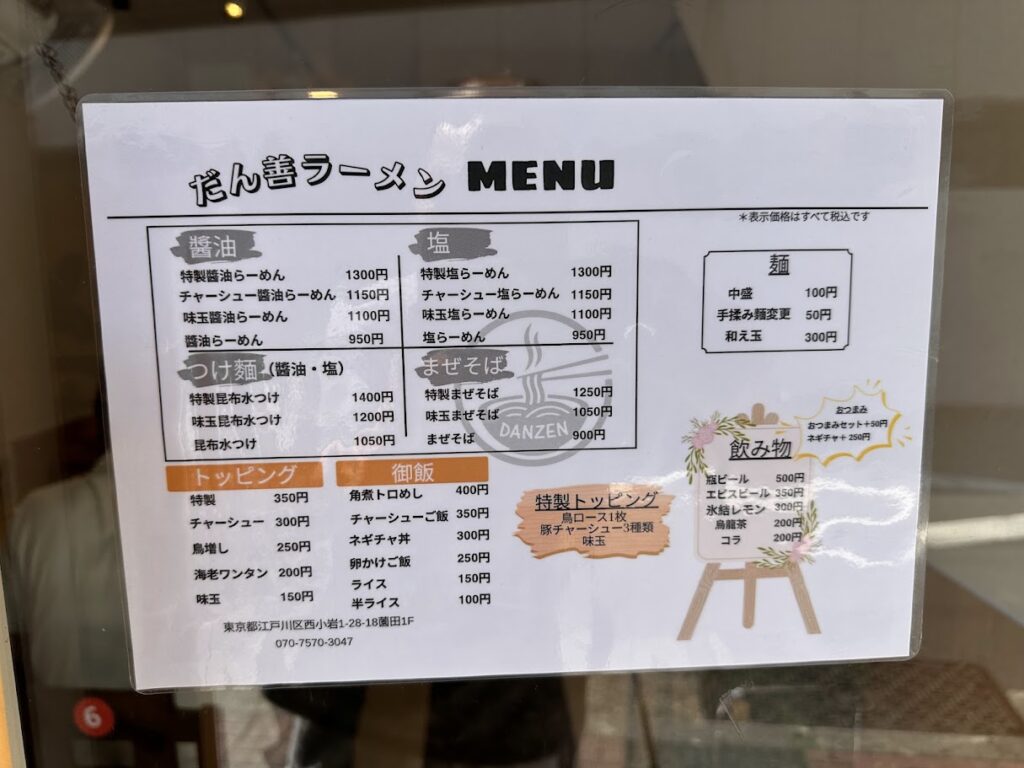 だん善ラーメン MENU
*表示価格はすべて税込です
醬油
特製醬油らーめん 1300円
チャーシュー醬油らーめん 1150円
味玉醬油らーめん 1100円
醬油らーめん 950円
塩
特製塩らーめん 1300円
チャーシュー塩らーめん 1150円
味玉塩らーめん 1100円
塩らーめん 950円
つけ麺(醬油・塩)
特製昆布水つけ 1400円
味玉昆布水つけ 1200円
昆布水つけ 1050円
まぜそば
特製まぜそば 1250円
味玉まぜそば 1050円
まぜそば 900円
DANZEN
麺
中盛 100円
手揉み麺変更 50円
和え玉 300円
トッピング
特製 350円
チャーシュー 300円
鳥増し 250円
海老ワンタン 200円
味玉 150円
御飯
角煮トロめし 400円
チャーシューご飯 350円
ネギチャ丼 300円
卵かけご飯 250円
ライス 150円
半ライス 100円
特製トッピング
鳥ロース1枚
豚チャーシュー3種類
味玉
おつまみ
おつまみセット+50円
ネギチャ+250円
飲み物
瓶ビール 500円
エビスビール 350円
氷結レモン 300円
烏龍茶 200円
コラ 200円
東京都江戸川区西小岩1-28-18薗田1F
070-7570-3047
6